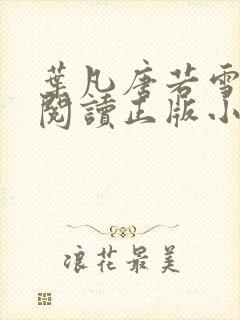 葉凡唐若雪
閱讀正版小
浪花最美